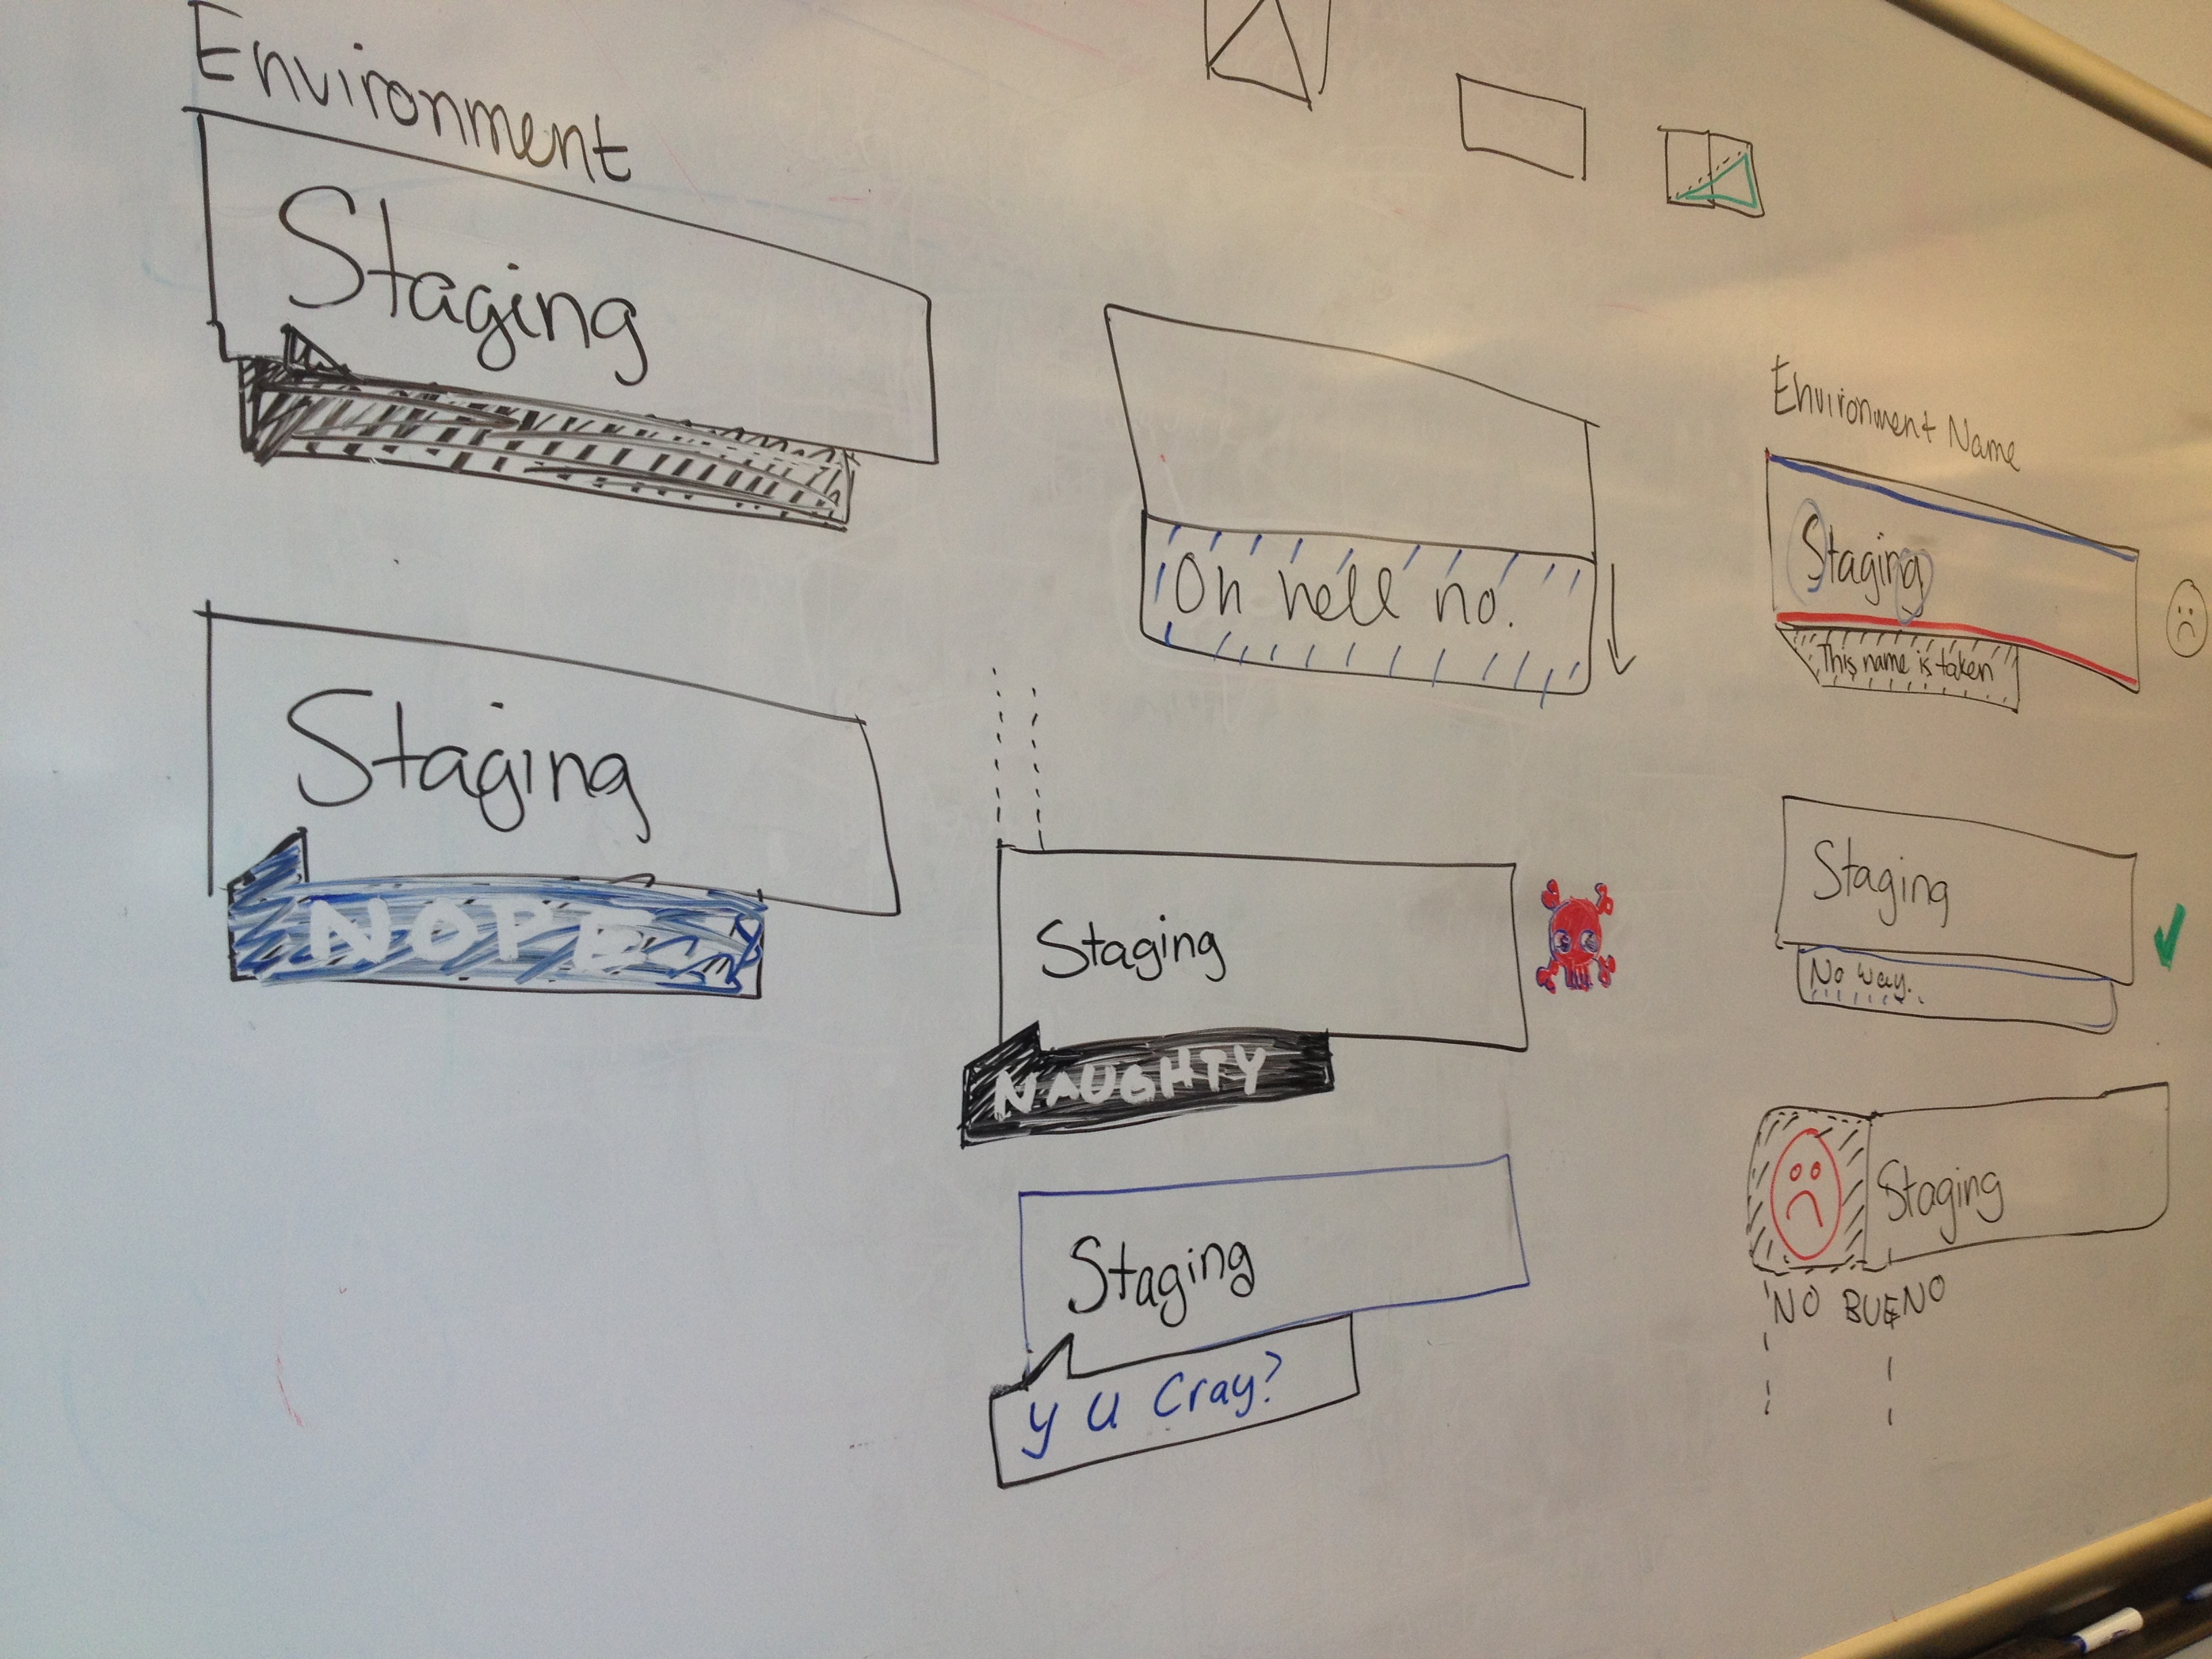 Environment
Staging
Staging
NOPE
Oh hell no.
Staging
NAUGHTY
Staging
y u cray?
Environment Name
Staging
This name is taken
Staging
No way.
Staging
NO BUENO